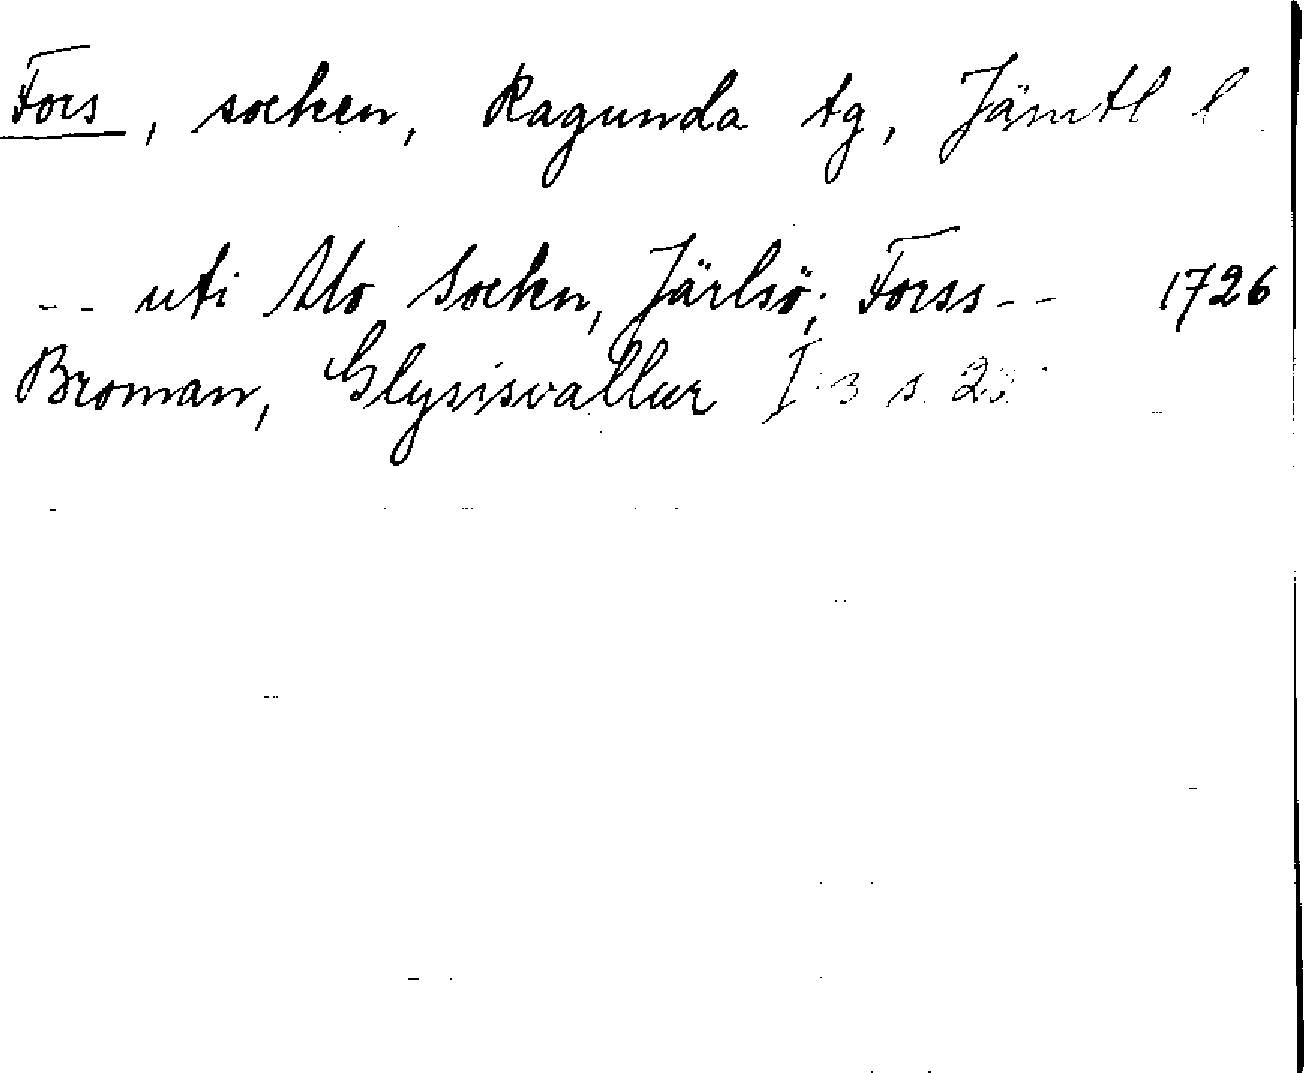 Fors, socken, Ragunda tg, Jämtl l
-- uti Mo Sockn, Järlsö; Forss -- 1726
Broman, Glysisvallur I:3 s.